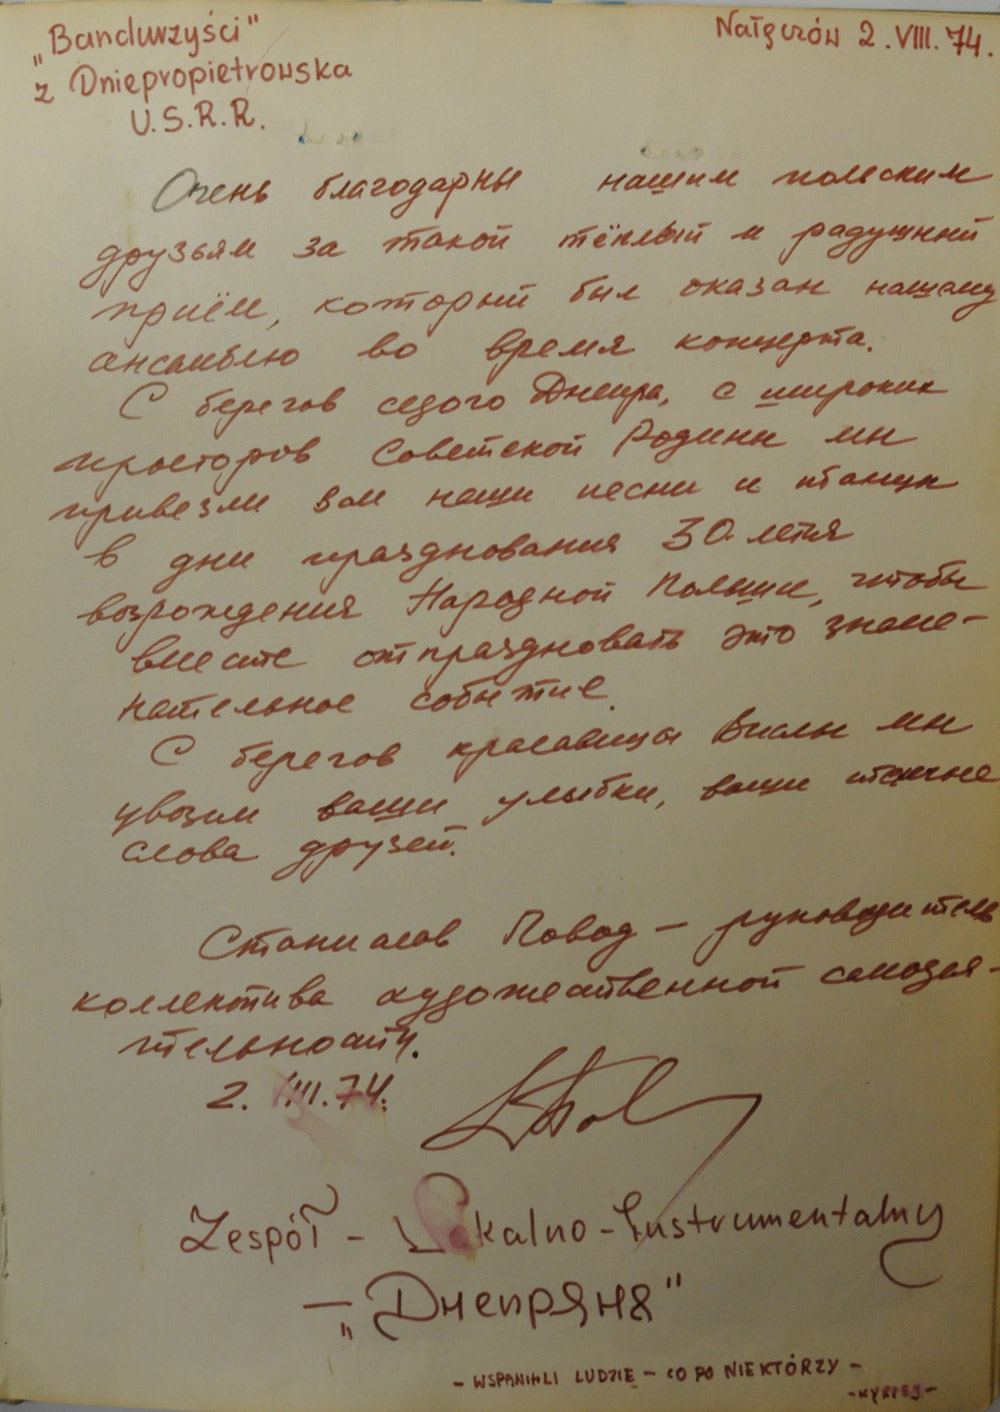 „Bandurzyści"
z Dniepropietrowska
U.S.R.R.
Nałęczów 2.VIII.74.
Очень благодарны нашим польским
друзьям за такой тёплый и радушный
приём, который был оказан нашему
ансамблю во время концерта.
С берегов седого Днепра, с широких
просторов Советской Родины мы
привезли вам наши песни и танцы
в дни празднования 30-летия
возрождения Народной Польши, чтобы
вместе отпраздновать это знаме-
нательное событие.
С берегов красавицы Вислы мы
увозим ваши улыбки, ваши
слова друзей.
Станислав Повод – руководитель
коллектива художественной самодея-
тельности.
2.VIII.74.
Zespół - Wokalno-Instrumentalny
— „Днепряня"
- WSPANIALI LUDZIE - CO PO NIEKTÓRZY -